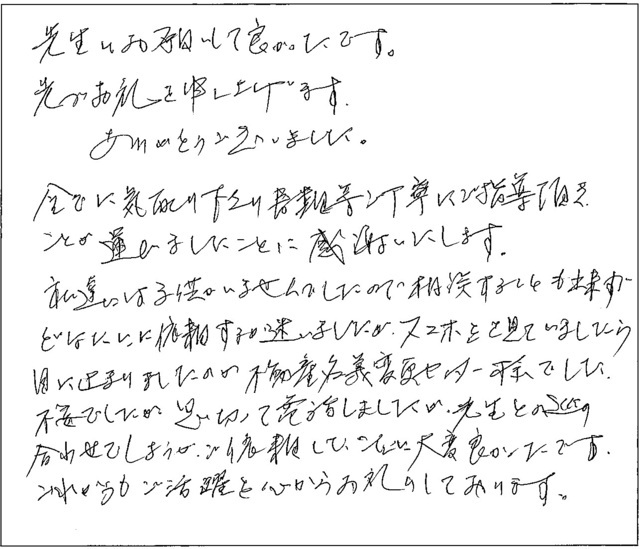 先生にお願いして良かったです。
先づお礼を申し上げます。
ありがとうございました。
全てに気配り下さり書類等の丁寧にご指導頂き
ことが運びましたことに感謝いたします。
私達には子供がいませんでしたので相談することも出来ず
どなたにに依頼するか迷いましたが、スマホを見ていましたら
目に止まりましたのが不動産名義変更センター様でした。
不安でしたが思い切って電話しましたが、先生との
合わせでしょうが、ご依頼して、大変良かったです。
これからもご活躍を心からお礼りしております。